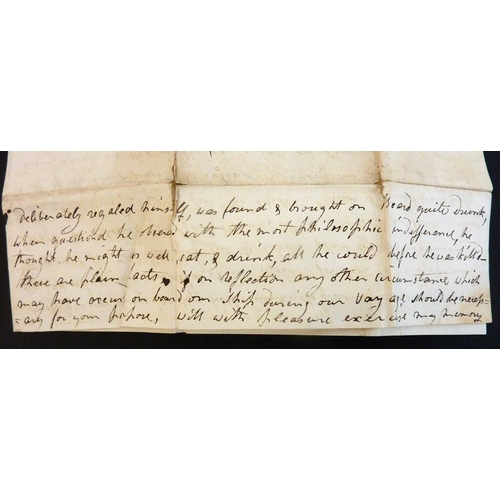 deliberately regaled himself, was found & brought on Board quite drunk,
when questiond he observd with the most philosophic indifference, he
thought he might as well eat, & drink, all he could before he was killd
these are plain facts if on reflection any other circumstance which
may have occurd on board our Ship during our Voyage should be necess-
-ary for your purpose, will with pleasure exercise my memory